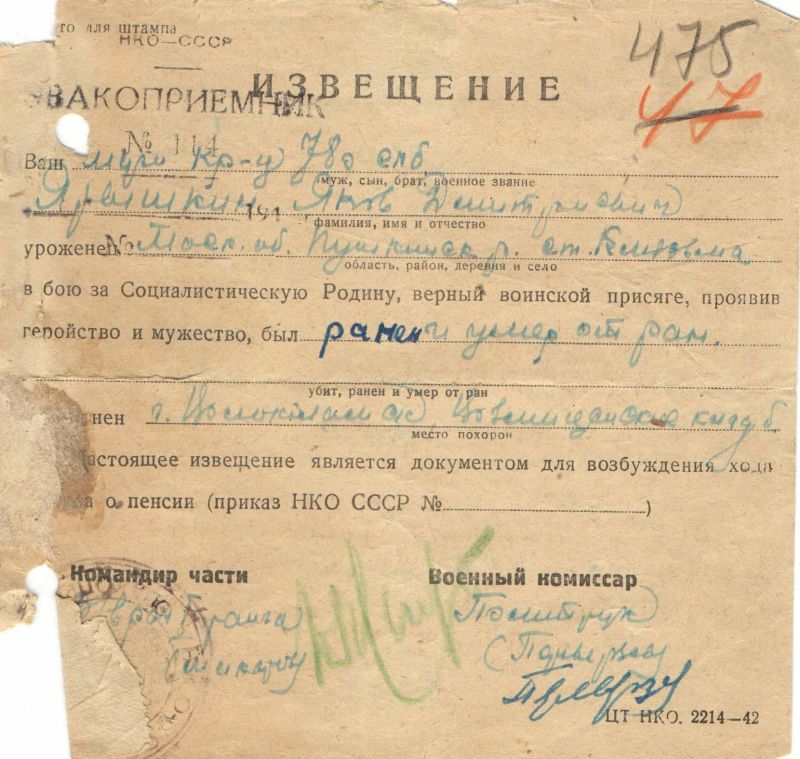 то для штампа
НКО—СССР
475
47
ИЗВЕЩЕНИЕ
ЭВАКОПРИЕМНИК
№ 114
Ваш муж кр-ц 780 спб
муж, сын, брат, военное звание
Ярышкин Яков Дмитриевич
194
фамилия, имя и отчество
уроженец № Моск. об. Пушкинск. р. ст. Клязьма
область, район, деревня и село
в бою за Социалистическую Родину, верный воинской присяге, проявив
геройство и мужество, был ранен и умер от ран.
убит, ранен и умер от ран
нен г. Волоколамск,
место похорон
астоящее извещение является документом для возбуждения хода
а о пенсии (приказ НКО СССР № )
Командир части Военный комиссар
Политрук
ЦТ НКО. 2214—42